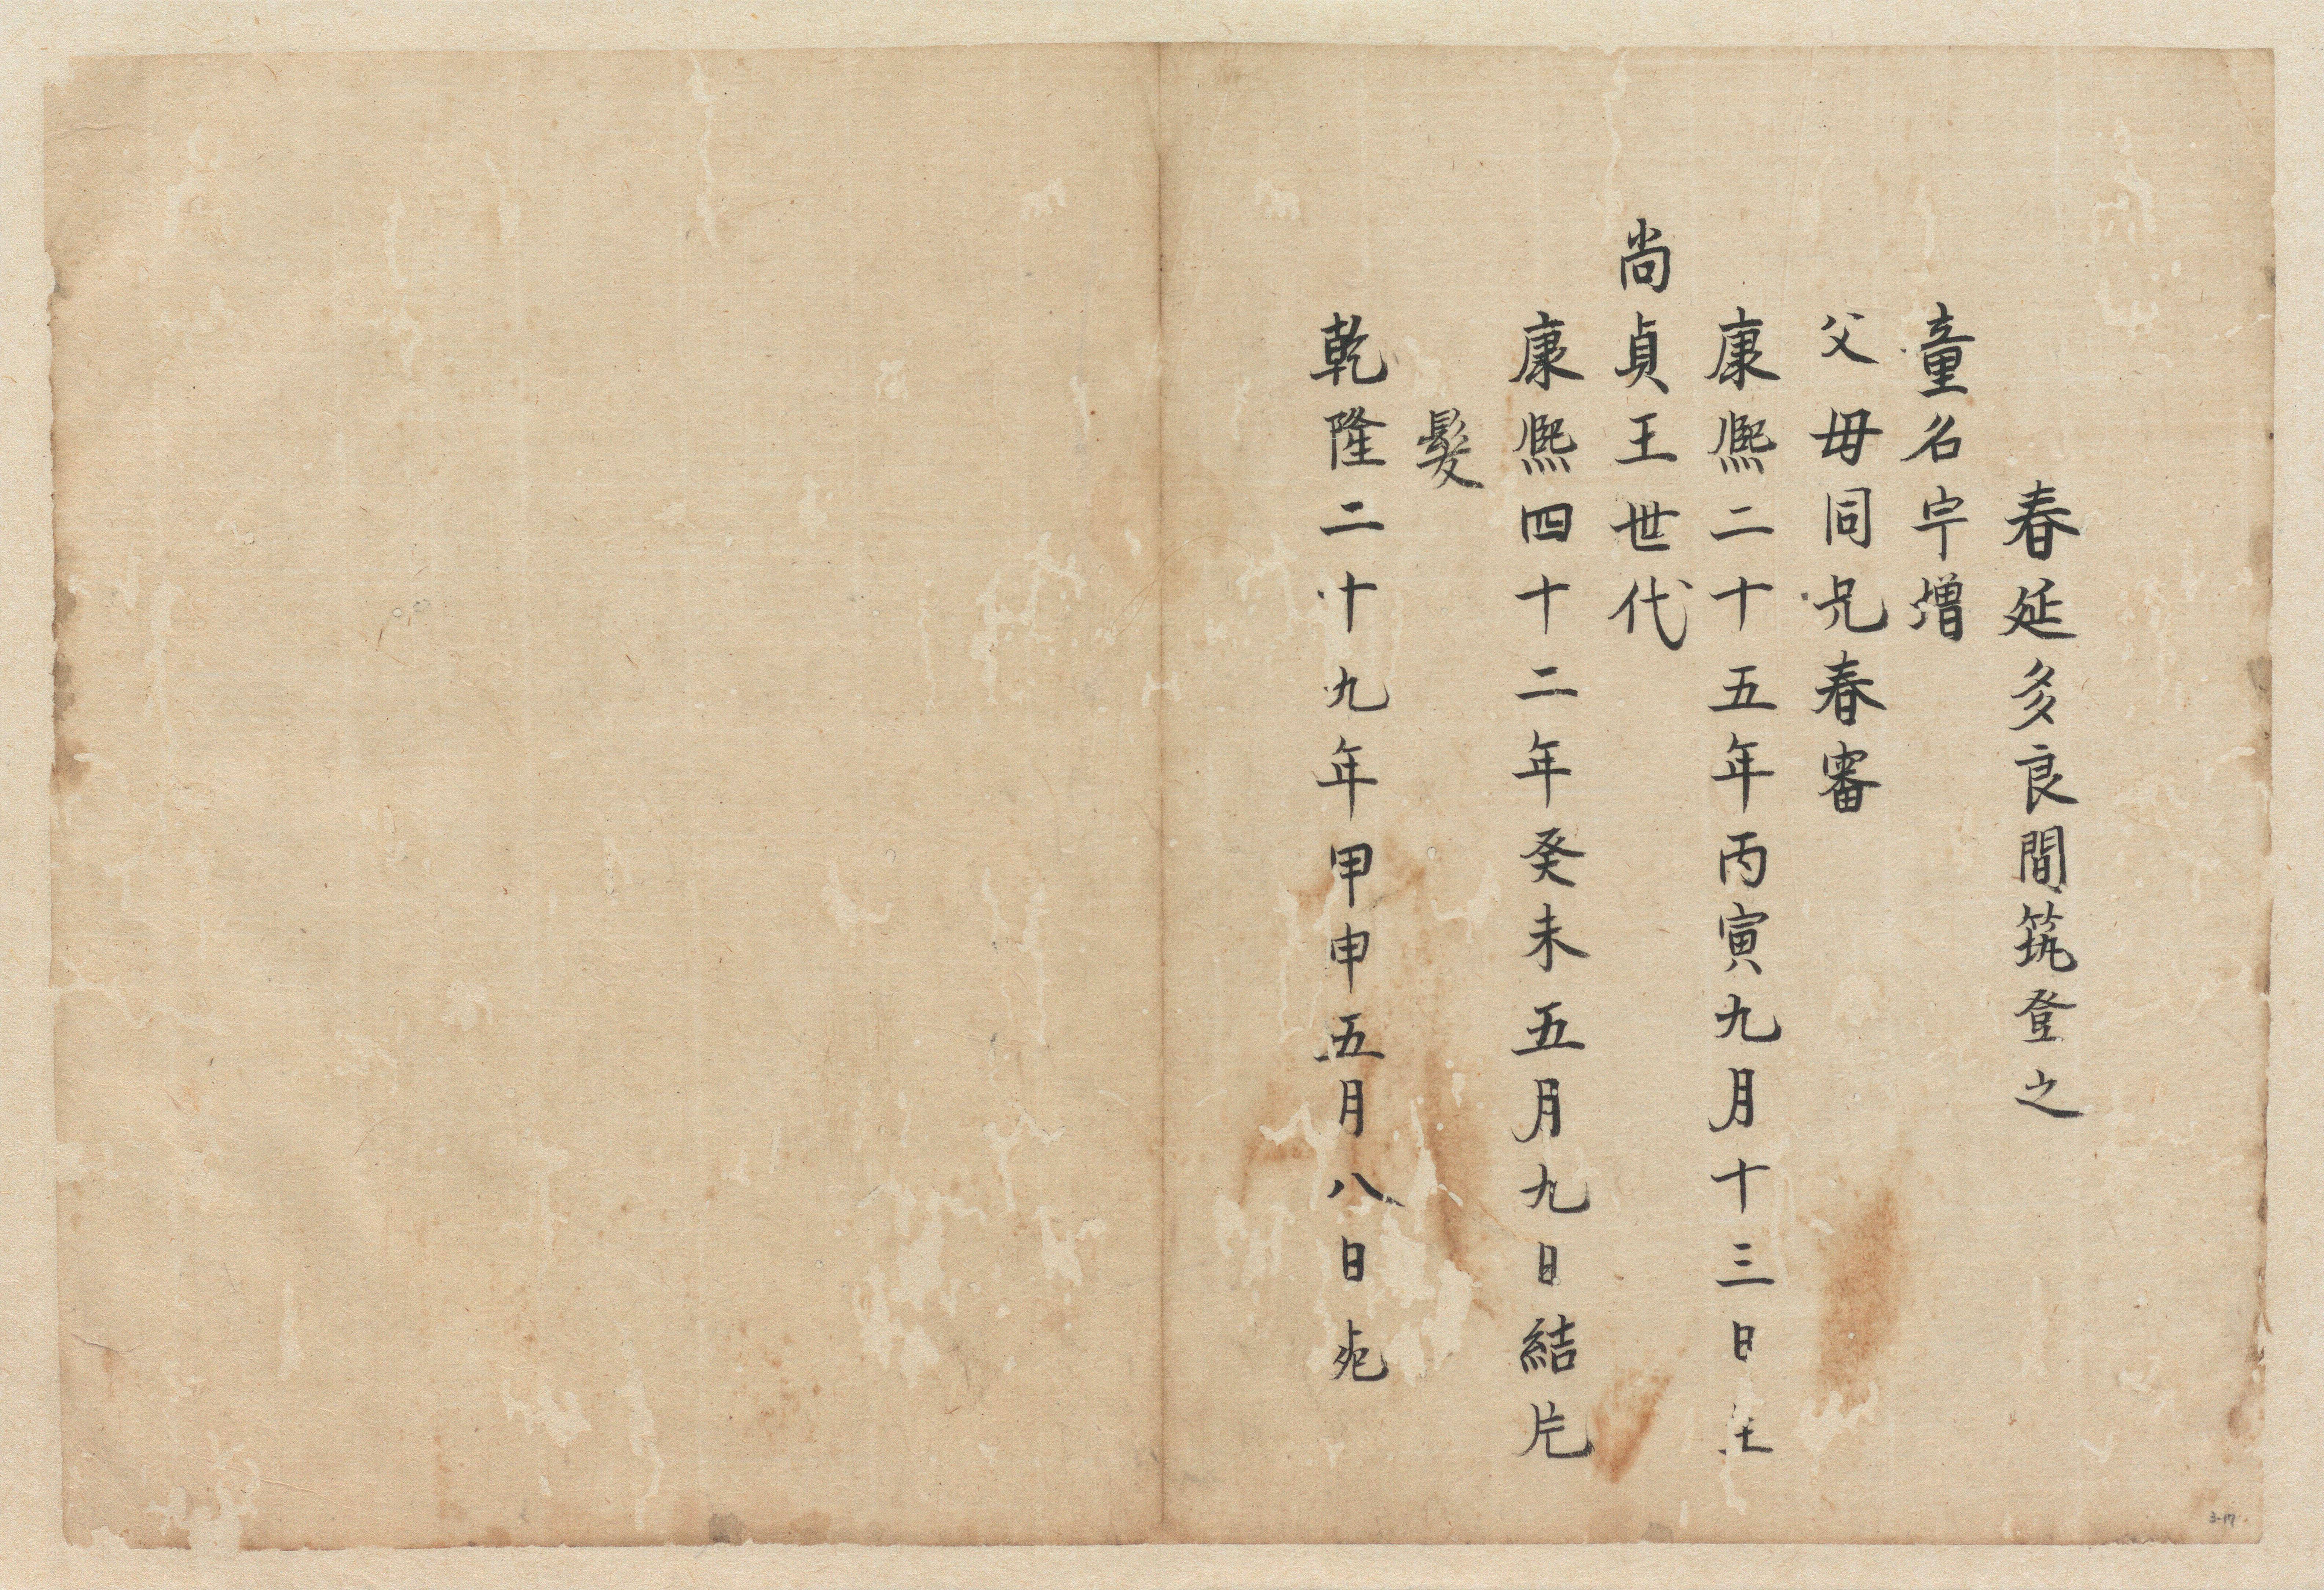 春延多良間筑登之
童名宇増
父母同兄春審
康熙二十五年丙寅九月十三日生
尚貞王世代
康熙四十二年癸未五月九日結片
髮
乾隆二十九年甲申五月八日死
3-17